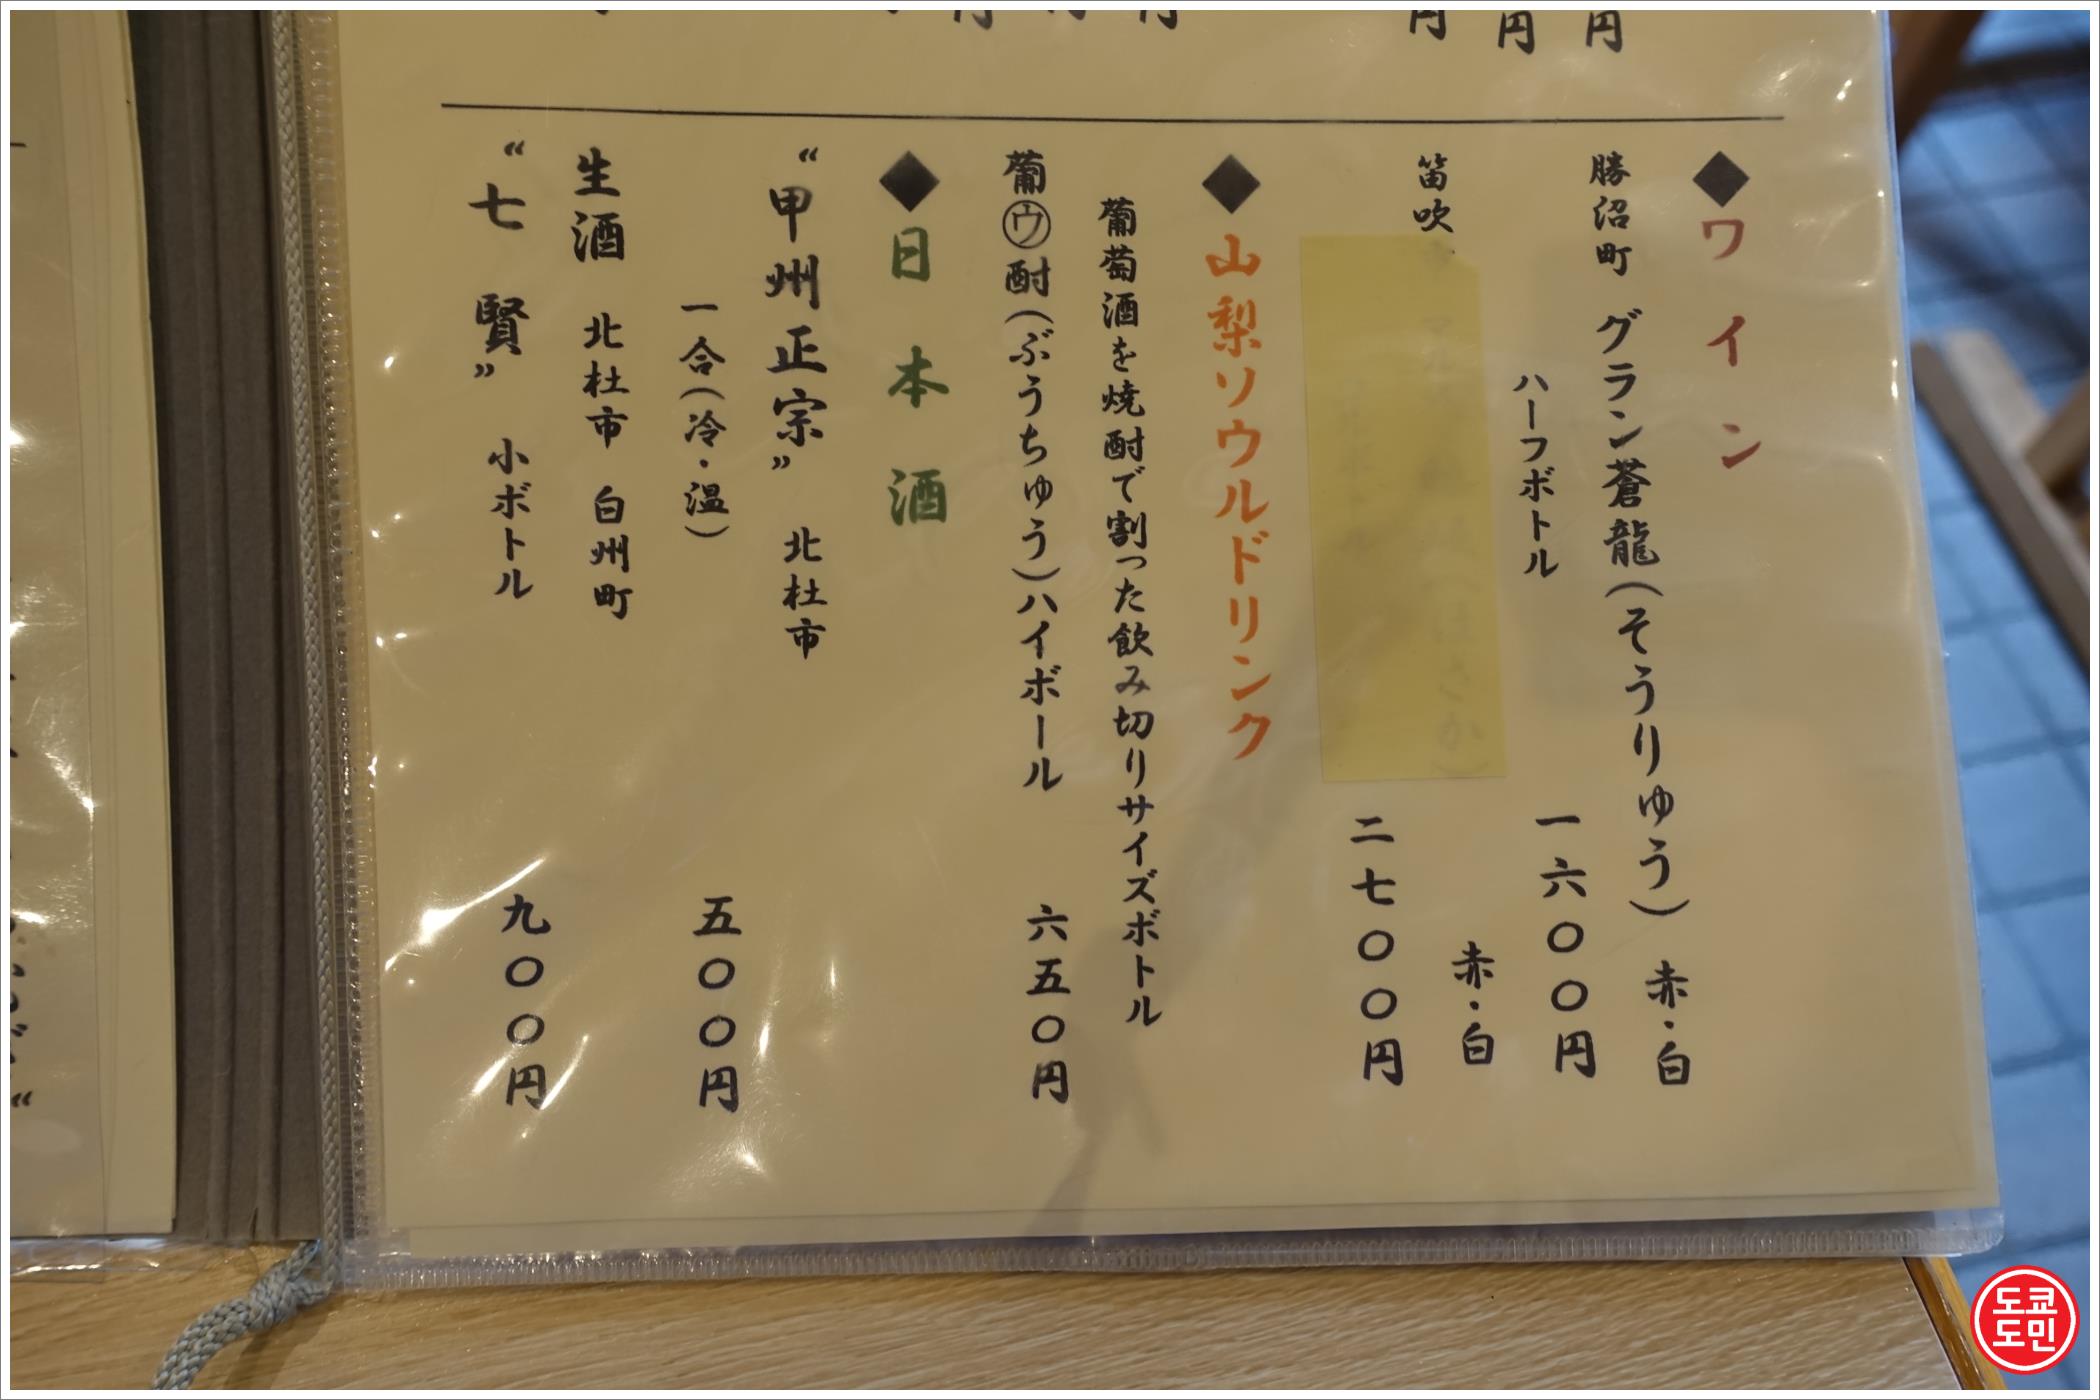 円
円
円
◆ワイン
勝沼町 グラン蒼龍(そうりゅう) 赤・白
ハーフボトル 一六〇〇円
笛吹 赤・白
二七〇〇円
◆山梨ソウルドリンク
葡萄酒を焼酎で割った飲み切りサイズボトル
葡㋒酎(ぶうちゅう)ハイボール 六五〇円
◆日本酒
“甲州正宗” 北杜市
一合(冷・温) 五〇〇円
生酒 北杜市 白州町
“七賢” 小ボトル 九〇〇円
도쿄
도민